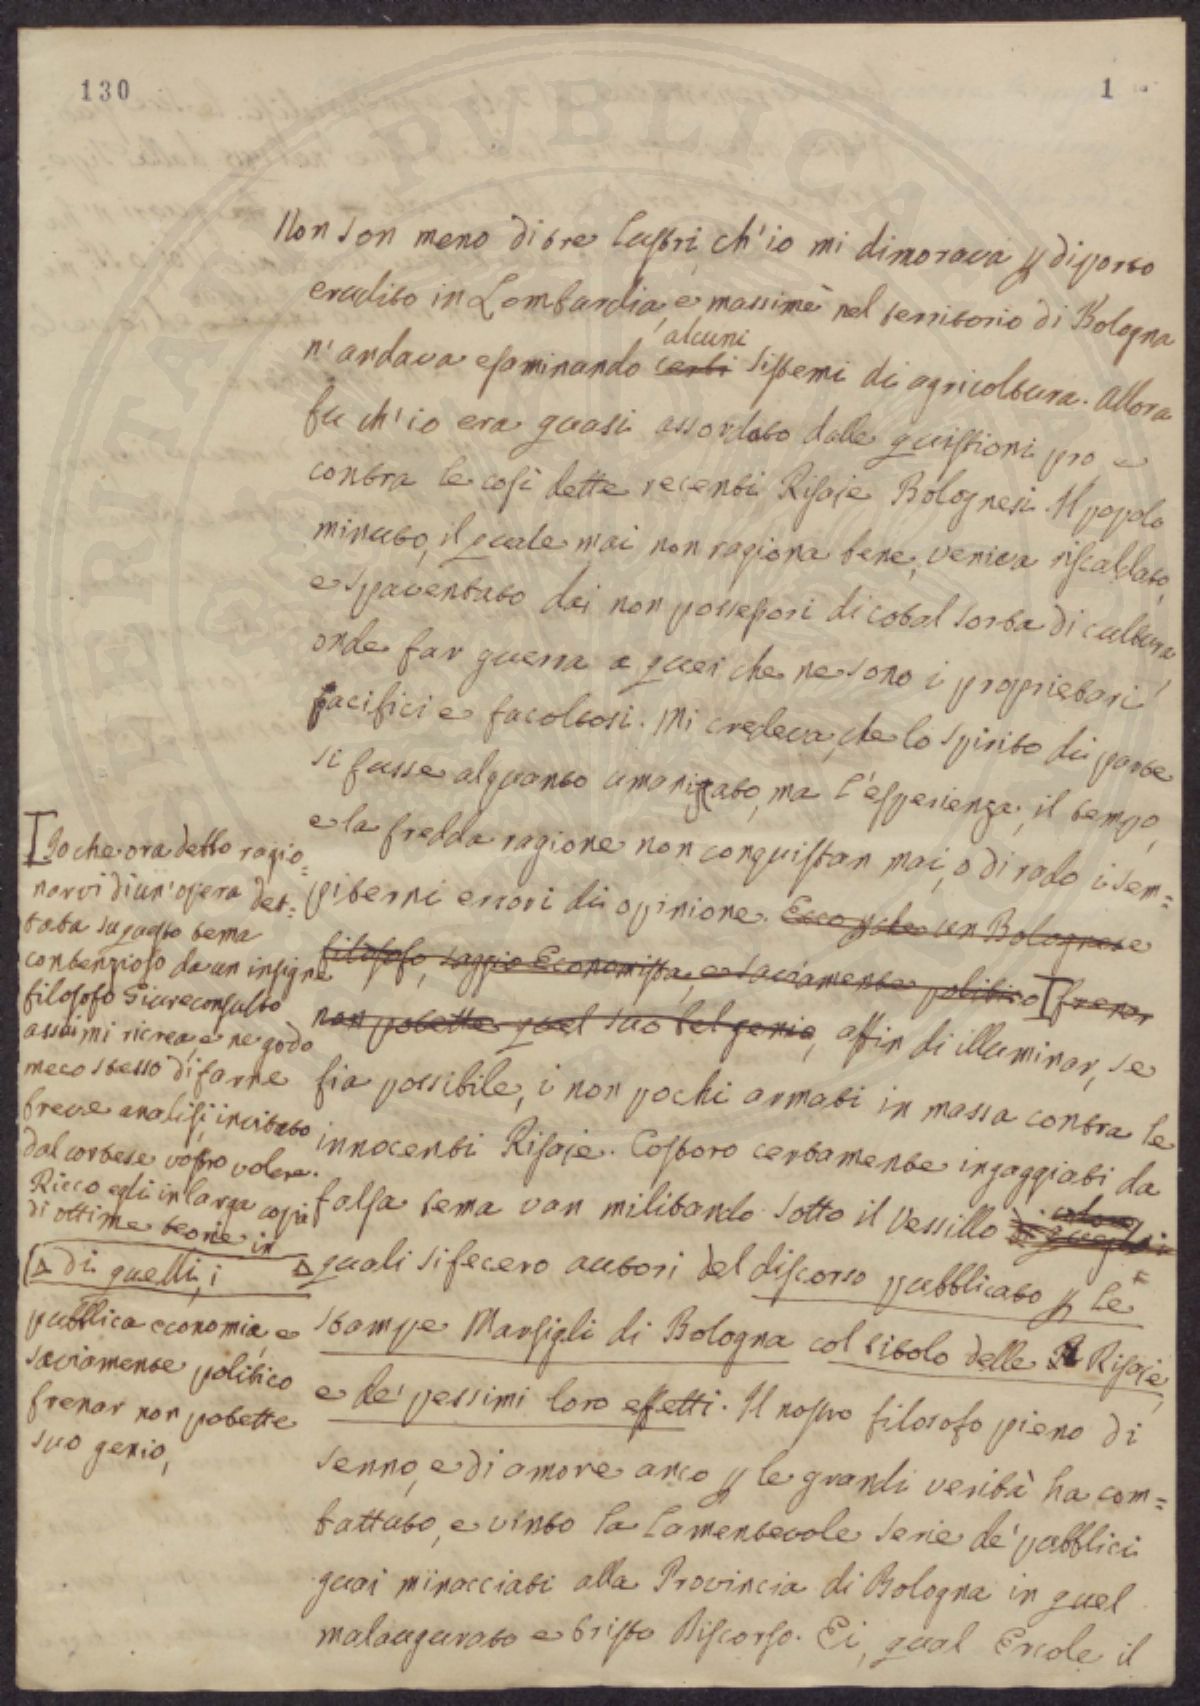 130
1
Non son meno di tre lustri, ch'io mi dimorava p diporto
erudito in Lombardia, e massime nel territorio di Bologna
alcuni
n'andava esaminando certi sistemi di agricoltura. Allora
fu ch'io era quasi assordato dalle quistioni pro e
contra le così dette recenti Risaje Bolognesi. Il popolo
minuto, il quale mai non ragiona bene, veniva riscaldato,
e spaventato dai non possessori di cotal sorta di cultura,
onde far guerra a quei che ne sono i proprietarj
pacifici e facoltosi. Mi credeva, che lo spirito di parte
si fusse alquanto umanizzato, ma l'esperienza, il tempo,
e la fredda ragione non conquistan mai, o di rado i sem=
piterni errori di opinione. Ecco che un Bolognese
filosofo, saggio Economista, e saviamente politico frenar
non potette quel suo bel genio, affin di illuminar, se
fia possibile, i non pochi armati in massa contra le
innocenti Risaje. Costoro certamente ingaggiati da
falsa tema van militando sotto il vessillo
quali si fecero autori del discorso pubblicato p le
stampe Marsigli di Bologna col titolo delle Risaje,
e de' pessimi loro effetti. Il nostro filosofo pieno di
senno, e di amore anco p le grandi verità ha com=
battuto, e vinto la lamentevole serie de' pubblici
guai minacciati alla Provincia di Bologna in quel
malaugurato e tristo Discorso. Ei, qual Ercole il
Io che ora debbo ragio=
narvi di un'opera det=
tata su questo tema
contenzioso da un insigne
filosofo Giureconsulto
assai mi ricrea, e ne godo
meco stesso di farne
breve analisi, invitato
dal cortese vostro volere.
Ricco egli in larga copia
di ottime teorie in
Δ di quelli, i
pubblica economia, e
saviamente politico
frenar non potette
suo genio,